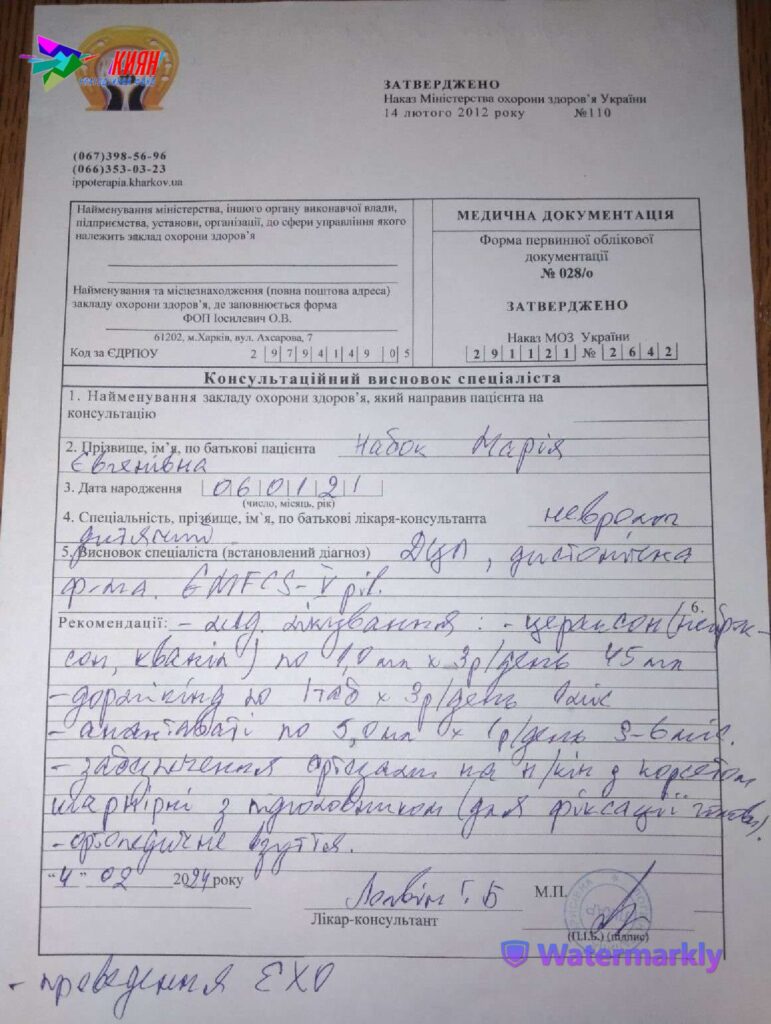 КИЯН
ЗАТВЕРДЖЕНО
Наказ Міністерства охорони здоров'я України
14 лютого 2012 року №110
(067)398-56-96
(066)353-03-23
ippoterapia.kharkov.ua
Найменування міністерства, іншого органу виконавчої влади,
підприємства, установи, організації, до сфери управління якого
належить заклад охорони здоров'я
Найменування та місцезнаходження (повна поштова адреса)
закладу охорони здоров'я, де заповнюється форма
ФОП Іосилевич О.В.
61202, м.Харків, вул. Ахсарова, 7
Код за ЄДРПОУ 2 9 7 9 4 1 4 9 0 5
МЕДИЧНА ДОКУМЕНТАЦІЯ
Форма первинної облікової
документації
№ 028/о
ЗАТВЕРДЖЕНО
Наказ МОЗ України
2 9 1 1 2 1 № 2 6 4 2
Консультаційний висновок спеціаліста
1. Найменування закладу охорони здоров'я, який направив пацієнта на
консультацію
2. Прізвище, ім'я, по батькові пацієнта Набок Марія
Євгенівна
3. Дата народження 0 6 0 1 2 1
(число, місяць, рік)
4. Спеціальність, прізвище, ім`я, по батькові лікаря-консультанта невролог
дитячий
5. Висновок спеціаліста (встановлений діагноз) ДЦП, дистонічна
ф-ма. GMFCS-V рів.
6.
Рекомендації: - мед. лікування : - цераксон (нейрок-
сон, кваніл) по 1,0 мл х 3р/день 45 мл
по 1 таб х 3р/день 1 міс
по 5,0 мл х 1р/день 3-6 міс.
- забезпечення ортезами на н/кін з корсетом
шарнірні з підголовником (для фіксації голови).
- ортопедичне взуття.
"4" 02 2024 року
М.П.
Лікар-консультант
(П.І.Б.) (підпис)
Watermarkly
- проведення ЕХО